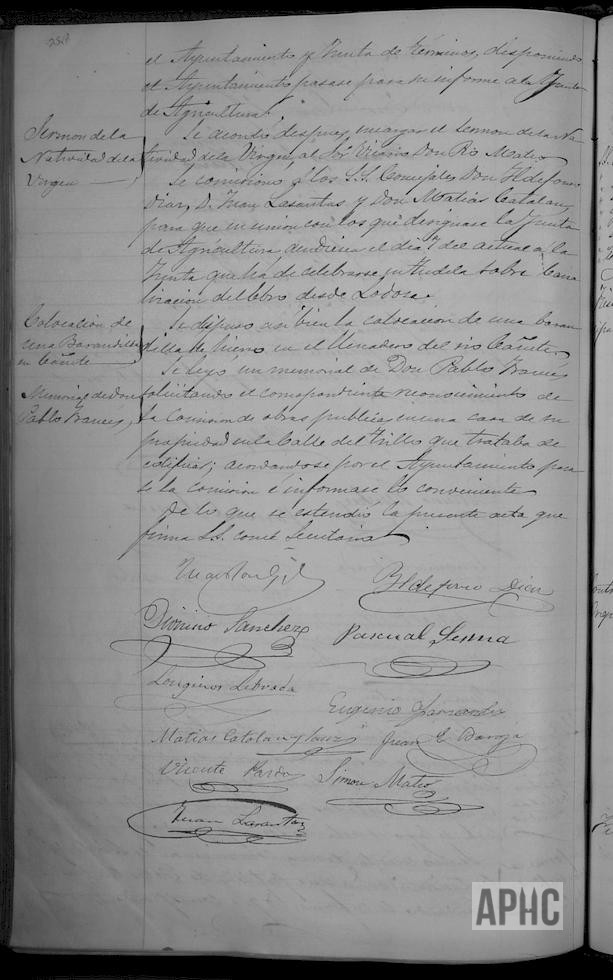 el Ayuntamiento y Junta de términos, disponiendo
el Ayuntamiento pasase para su informe a la Junta
de Agricultura.
Sermon de la
Natividad de la
Virgen
Se acordó despues, encargar el sermon de la Na
tividad de la Virgen, al Sor Vicario Don Pio Mateo
Se comisionó a los S.S. Concejales Don Ildefonso
Diaz, D. Juan Lasantas y Don Matias Catalan,
para que en union con los que designase la Junta
de Agricultura, acudiesen el dia del actual a la
Junta que ha de celebrarse en Tudela sobre Cana
lizacion del Ebro desde Lodosa.
Colocacion de
una Barandilla
en Cañete
Se dispuso asi bien la colocacion de una baran
dilla de hierro en el llenadero del rio Cañete.
Memorial de Don
Pablo Frances,
Se leyó un memorial de Don Pablo Frances
solicitando el correspondiente reconocimiento de
la Comision de obras publicas en una casa de su
propiedad en la Calle del Trillo que trataba de
edificar; acordandose por el Ayuntamiento pasa
se la comision é informase lo conveniente
De lo que se estendió la presente acta que
firma S.S. con el Secretario
Ildefonso Diaz
Dionisio Sanchez
Pascual Serna
Longinos Librada
Eugenio
Matias Catalan y Sanz
Juan C Baroja
Vicente Pardo
Simon Mateo
Juan Lasantas
APHC